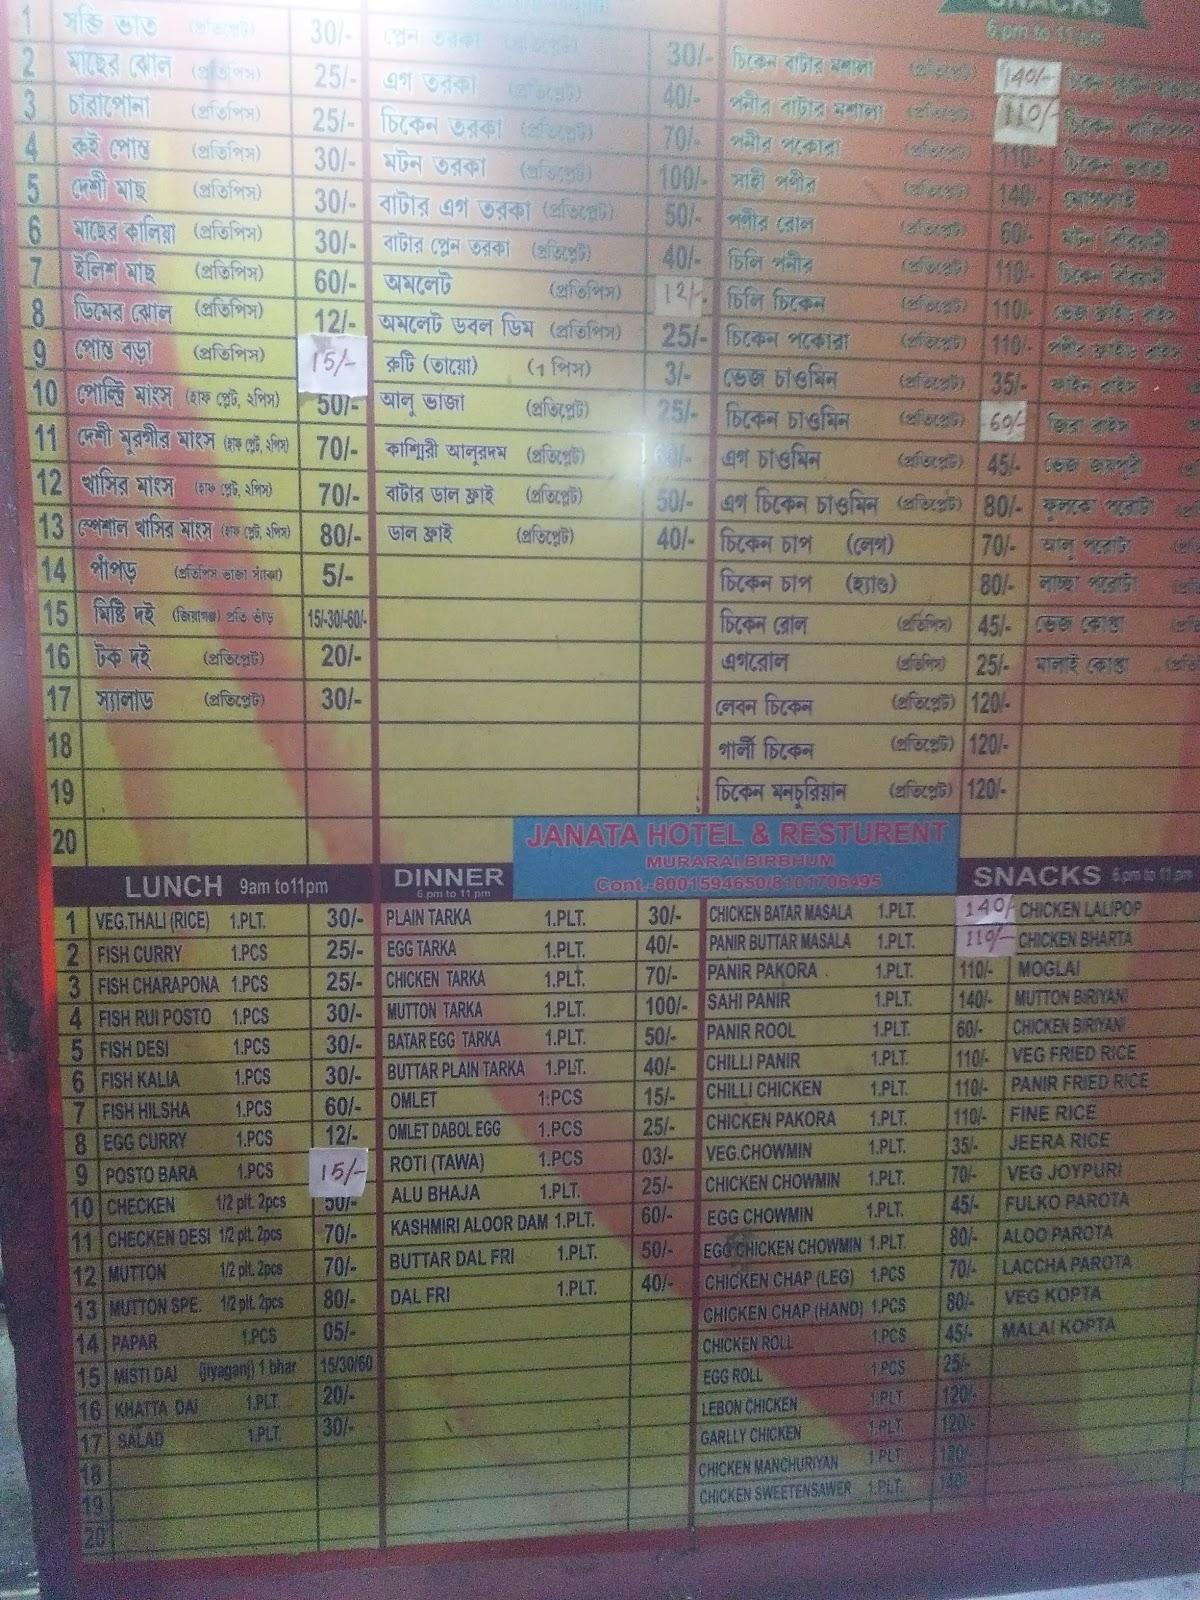 SNACKS
6 pm to 11 pm
1 সব্জি ভাত (প্রতিপ্লেট) 30/- প্লেন তরকা (প্রতিপ্লেট) 30/- চিকেন বাটার মশালা (প্রতিপ্লেট) 140/-
2 মাছের ঝোল (প্রতিপিস) 25/- এগ তরকা (প্রতিপ্লেট) 40/- পনীর বাটার মশালা (প্রতিপ্লেট) 110/-
3 চারাপোনা (প্রতিপিস) 25/- চিকেন তরকা (প্রতিপ্লেট) 70/- পনীর পকোরা (প্রতিপ্লেট) 110/- চিকেন ভরতা
4 রুই পোস্ত (প্রতিপিস) 30/- মটন তরকা (প্রতিপ্লেট) 100/- সাহী পণীর (প্রতিপ্লেট) 140/- মোগলাই
5 দেশী মাছ (প্রতিপিস) 30/- বাটার এগ তরকা (প্রতিপ্লেট) 50/- পণীর রোল (প্রতিপ্লেট) 60/- মটন বিরিয়ানী
6 মাছের কালিয়া (প্রতিপিস) 30/- বাটার প্লেন তরকা (প্রতিপ্লেট) 40/- চিলি পনীর (প্রতিপ্লেট) 110/- চিকেন বিরিয়ানী
7 ইলিশ মাছ (প্রতিপিস) 60/- অমলেট (প্রতিপিস) 12/- চিলি চিকেন (প্রতিপ্লেট) 110/- ভেজ ফ্রাইড রাইস
8 ডিমের ঝোল (প্রতিপিস) 12/- অমলেট ডবল ডিম (প্রতিপিস) 25/- চিকেন পকোরা (প্রতিপ্লেট) 110/- পণীর ফ্রাইড রাইস
9 পোস্ত বড়া (প্রতিপিস) 15/- রুটি (তায়ো) (1 পিস) 3/- ভেজ চাওমিন (প্রতিপ্লেট) 35/- ফাইন রাইস
10 পোল্ট্রি মাংস (হাফ প্লেট, ২পিস) 50/- আলু ভাজা (প্রতিপ্লেট) 25/- চিকেন চাওমিন (প্রতিপ্লেট) 60/- জিরা রাইস
11 দেশী মুরগীর মাংস (হাফ প্লেট, ২পিস) 70/- কাশ্মিরী আলুরদম (প্রতিপ্লেট) 60/- এগ চাওমিন (প্রতিপ্লেট) 45/- ভেজ জয়পুরী
12 খাসির মাংস (হাফ প্লেট, ২পিস) 70/- বাটার ডাল ফ্রাই (প্রতিপ্লেট) 50/- এগ চিকেন চাওমিন (প্রতিপ্লেট) 80/- কুলকো পরোটা
13 স্পেশাল খাসির মাংস (হাফ প্লেট, ২পিস) 80/- ডাল ফ্রাই (প্রতিপ্লেট) 40/- চিকেন চাপ (লেগ) 70/- আলু পরোটা
14 পাঁপড় (প্রতিপিস ভাজা স্যাঁকা) 5/- চিকেন চাপ (হ্যাণ্ড) 80/- লাচ্ছা পরোটা
15 মিষ্টি দই (জিয়াগঞ্জ) প্রতি ভাঁড় 15/-30/-60/- চিকেন রোল (প্রতিপিস) 45/- ভেজ কোপ্তা
16 টক দই (প্রতিপ্লেট) 20/- এগরোল (প্রতিপিস) 25/- মালাই কোপ্তা
17 স্যালাড (প্রতিপ্লেট) 30/- লেবন চিকেন (প্রতিপ্লেট) 120/-
18 গার্লী চিকেন (প্রতিপ্লেট) 120/-
19 চিকেন মনচুরিয়ান (প্রতিপ্লেট) 120/-
20
JANATA HOTEL & RESTURENT
MURARAI BIRBHUM
Cont.-8001594650/8101706495
LUNCH 9am to11pm DINNER 6 pm to 11 pm SNACKS 6 pm to 11 pm
1 VEG.THALI (RICE) 1.PLT. 30/- PLAIN TARKA 1.PLT. 30/- CHICKEN BATAR MASALA 1.PLT. 140/- CHICKEN LALIPOP
2 FISH CURRY 1.PCS 25/- EGG TARKA 1.PLT. 40/- PANIR BUTTAR MASALA 1.PLT. 110/- CHICKEN BHARTA
3 FISH CHARAPONA 1.PCS 25/- CHICKEN TARKA 1.PLT. 70/- PANIR PAKORA 1.PLT. 110/- MOGLAI
4 FISH RUI POSTO 1.PCS 30/- MUTTON TARKA 1.PLT. 100/- SAHI PANIR 1.PLT. 140/- MUTTON BIRIYANI
5 FISH DESI 1.PCS 30/- BATAR EGG TARKA 1.PLT. 50/- PANIR ROOL 1.PLT. 60/- CHICKEN BIRIYANI
6 FISH KALIA 1.PCS 30/- BUTTAR PLAIN TARKA 1.PLT. 40/- CHILLI PANIR 1.PLT. 110/- VEG FRIED RICE
7 FISH HILSHA 1.PCS 60/- OMLET 1.PCS 15/- CHILLI CHICKEN 1.PLT. 110/- PANIR FRIED RICE
8 EGG CURRY 1.PCS 12/- OMLET DABOL EGG 1.PCS 25/- CHICKEN PAKORA 1.PLT. 110/- FINE RICE
9 POSTO BARA 1.PCS 15/- ROTI (TAWA) 1.PCS 03/- VEG.CHOWMIN 1.PLT. 35/- JEERA RICE
10 CHECKEN 1/2 plt. 2pcs 50/- ALU BHAJA 1.PLT. 25/- CHICKEN CHOWMIN 1.PLT. 70/- VEG JOYPURI
11 CHECKEN DESI 1/2 plt. 2pcs 70/- KASHMIRI ALOOR DAM 1.PLT. 60/- EGG CHOWMIN 1.PLT. 45/- FULKO PAROTA
12 MUTTON 1/2 plt. 2pcs 70/- BUTTAR DAL FRI 1.PLT. 50/- EGG CHICKEN CHOWMIN 1.PLT. 80/- ALOO PAROTA
13 MUTTON SPE. 1/2 plt. 2pcs 80/- DAL FRI 1.PLT. 40/- CHICKEN CHAP (LEG) 1.PCS 70/- LACCHA PAROTA
14 PAPAR 1.PCS 05/- CHICKEN CHAP (HAND) 1.PCS 80/- VEG KOPTA
15 MISTI DAI (jiyaganj) 1 bhar 15/30/60 CHICKEN ROLL 1.PCS 45/- MALAI KOPTA
16 KHATTA DAI 1.PLT. 20/- EGG ROLL 1 PCS 25/-
17 SALAD 1.PLT. 30/- LEBON CHICKEN 1.PLT. 120/-
18 GARLLY CHICKEN 1.PLT. 120/-
19 CHICKEN MANCHURIYAN 1 PLT 120/
20 CHICKEN SWEETENSAWER 1.PLT. 140/